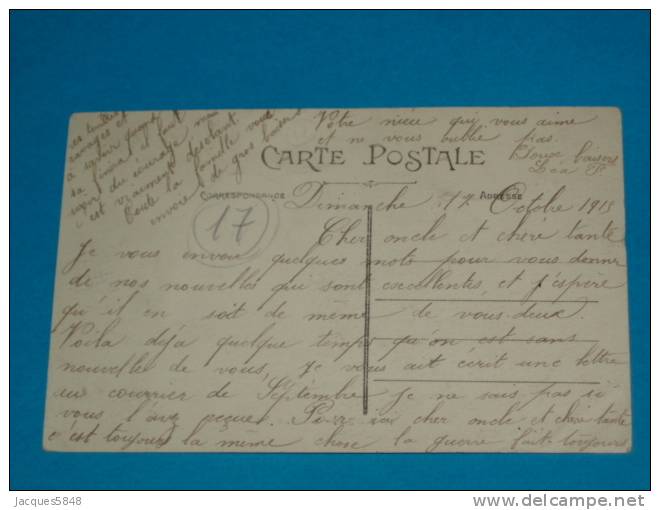 CARTE POSTALE
CORRESPONDANCE
ADRESSE
17
Dimanche 17 Octobre 1915
Cher oncle et chère tante
Je vous envoie quelques mots pour vous donner
de nos nouvelles qui sont excellentes, et j'espère
qu'il en soit de même de vous deux.
Voila déja quelque temps qu'on est sans
nouvelle de vous, Je vous ait écrit une lettre
au courrier de Septembre Je ne sais pas si
vous l'avez reçue. cher oncle et chère tante
c'est toujours la meme chose la guerre fait toujours
ses
ravages et
à savoir quand
sa finira il faut
avoir du courage mais
c'est vraiment desolant
Toute la famille vous
envoie de gros baisers
Votre nièce qui vous aime
et ne vous oublie pas.
Doux baisers
Léa
Jacques5848
delcampe.net